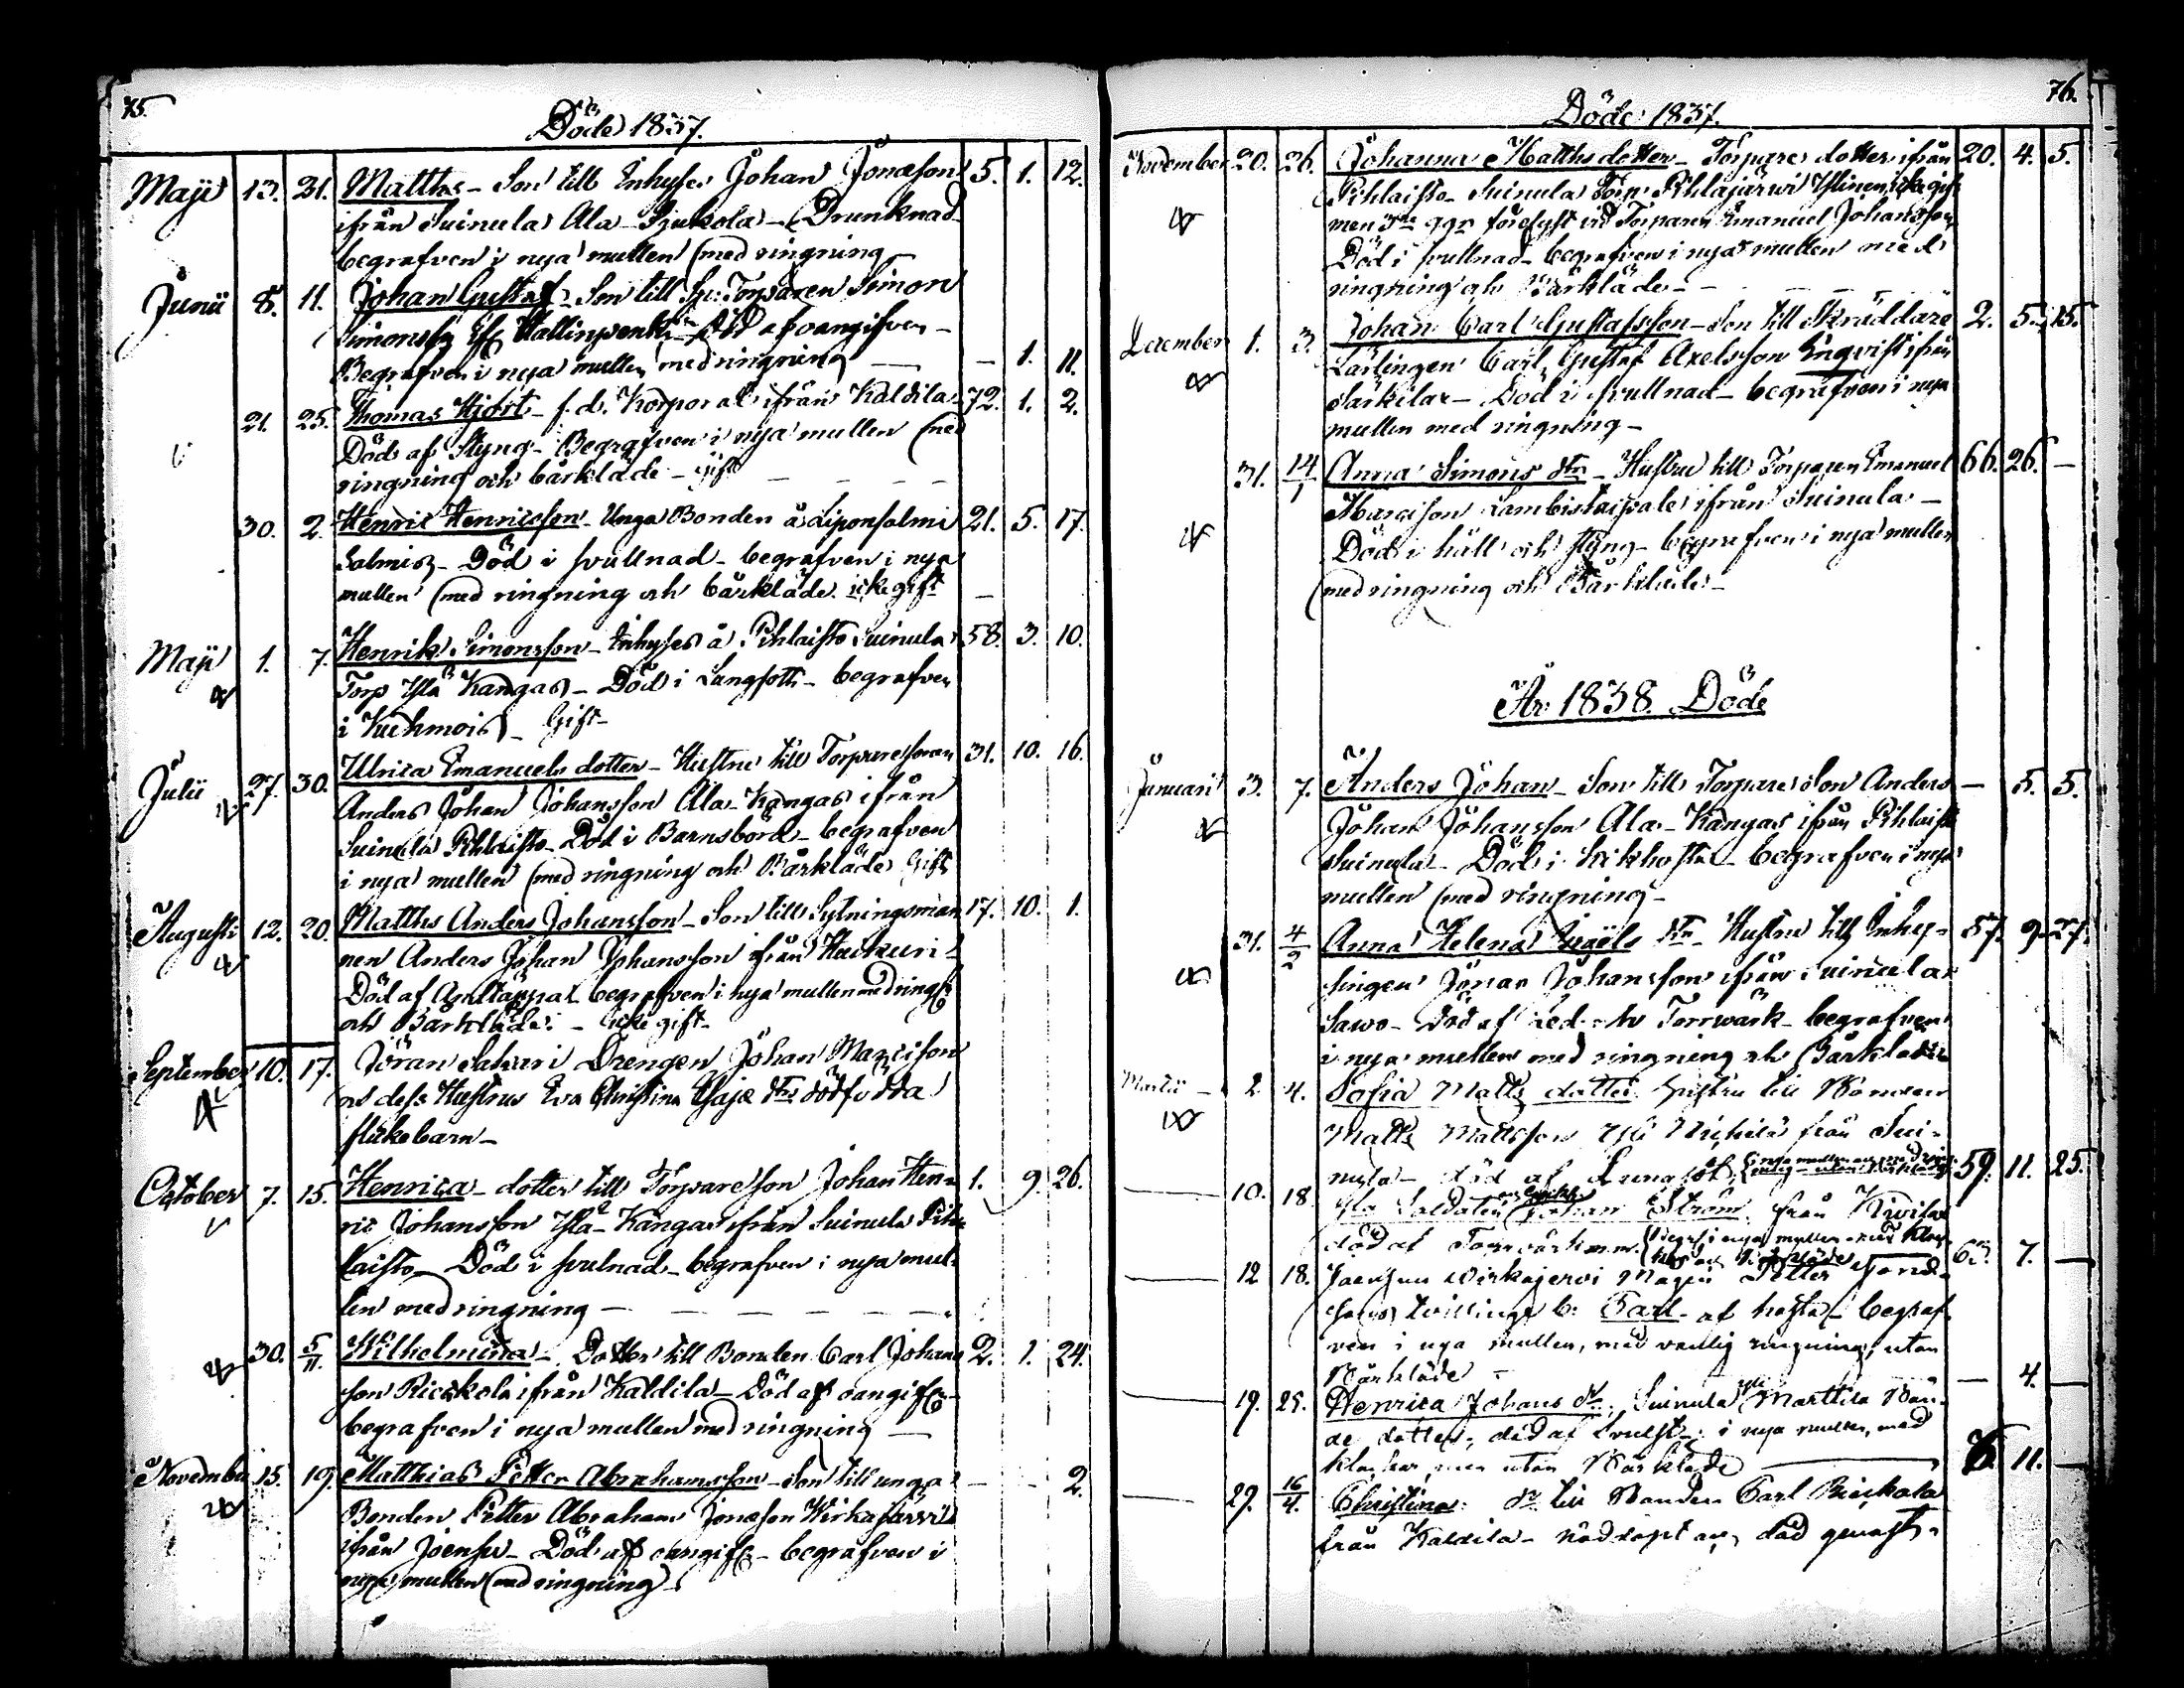 75.
Döde 1837.
Maji 13. 21. Matths - Son till Inhyses Johan Jonæson 5. 1. 12.
ifrån Suinula Ala - Drunknad -
begrafven i nya mullen med ringning -
Junii 8. 11. Johan Gustaf - Son till Torparen Simon
Simonss - Död af oangifven -
Begrafven i nya mullen med ringning - - 1. 11.
21. 25. Thomas Hjort - f.d. Korporal ifrån Kaldila - 72. 1. 2.
Död af Styng - Begrafven i nya mullen med
ringning och bårkläde - Gift
30. 2. Henric Henricsson - Unga Bonden å Liponsalmi 21. 5. 17.
Salmis - Död i svullnad - begrafven i nya
mullen med ringning och bårkläde. icke gift -
Maji 1. 7. Henrik Simonsson - Inhyses å Pihlaisto Suinula 58. 3. 10.
Torp Yla Kangas - Död i Lungsoth - begrafven
i Kuchmois - Gift -
Julii 27. 30. Ulrica Emanuels dotter - Hustru till Torparesonen 31. 10. 16.
Anders Johan Johansson Ala - Kangas ifrån
Suinula Pihlaisto - Död i Barnsbörd - begrafven
i nya mullen med ringning och Bårkläde Gift
Augusti 12. 20. Matths Anders Johansson - Son till Sytningsman 17. 10. 1.
nen Anders Johan Johansson ifrån Haukuri -
Död af - begrafven i nya mullen med ringg
och Bårkläde. - icke gift -
September 10. 17. Jöran Sakari Drengen Johan Marcisson
och dess Hustrus Eva Christina Esajæ dtrs dödfödda
flickebarn -
October 7. 15. Henrica - dotter till Torpareson Johan Hen- 1. 9. 26.
ric Johansson Yla - Kangas ifrån Suinula Pih
laisto - Död i svulnad - begrafven i nya mul-
len med ringning -
30. 5/11. Wilhelmina - Dotter till Bonden Carl Johans 2. 1. 24.
son Riickola ifrån Kaldila - Död af oangifv -
begrafven i nya mullen med ringning -
November 15. 19. Matthias Petter Abrahamsson - Son till unga - - 2.
Bonden Petter Abraham Jonæson Wirkajärvi
ifrån Joensu - Död af oangifv - begrafven i
nya mullen med ringning -
76.
Döde 1837.
November 20. 26. Johanna Matths dotter - Torpare dotter ifrån 20. 4. 5.
Pihlaisto Suinula Torp Pihlajärwi Ylinen, icke gift
men 3ne ggr förelyst vid Torparen Emanuel Johansson
Död i svullnad - begrafven i nya mullen med
ringning och Bårkläde -
December 1. 3. Johan Carl Gustafsson - Son till Skräddare 2. 5. 15.
Lärlingen Carl Gustaf Axelsson Engvist ifrån
Särkilax - Död i svullnad - begrafven i nya
mullen med ringning -
31. 14/1 Anna Simons dtr - Hustru till Torparen Emanuel 66. 26. -
Marcison Lambistaipale ifrån Suinula -
Död i håll och styng - begrafven i nya mullen
med ringning och Bårkläde -
År 1838. Döde
Januari 3. 7. Anders Johan - Son till Torpare Son Anders - 5. 5.
Johan Johansson Ala - Kangas ifrån Pihlaisto
Suinula - Död i Kikhosta - begrafven i nya
mullen med ringning -
31. 4/2 Anna Helena Zigels dtr - Hustru till Inhy- 57. 9. 27.
singen Jonas Johansson ifrån Suinula
Sawo - Död af Led- Torrwärk - begrafven
i nya mullen med ringning och Bårkläde
Martii - 2. 4. Sofia Matts dotter Hustru till Bonden
Matts Mattsson Yli från Sui-
nula - död af Lungsot, 59. 11. 25.
10. 18. Soldaten Johan Ström från Kivisa
död af Torrvärk m.m. 7. -
12 18. Joensuu Wirkajervi Mågen Petter
sons tvillinge b: Carl - af hosta - begraf
ven i nya mullen, med vanlig ringning, utan
Bårkläde - - 4. -
19. 25. Henrica Johans dr. Suinula Yli Marttila Bon-
de dotter, död af Svulst - i nya mullen, med
klockor, men utan Bårkläde 11. -
29. 16/4. Christina dr till Bonden Carl Riickola
från Kaldila - nöddöpt och död genast -